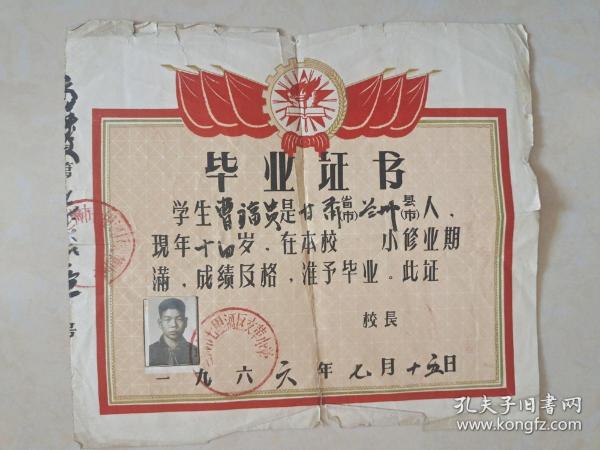 毕业证书
学生曹福员是甘肃省(市)兰州县(市)人,
現年十四岁,在本校 小修业期
满,成绩及格,准予毕业。此证
校長
一九六六年七月十五日
第
号
七里河区
小学
孔夫子旧书网
www.kongfz.com